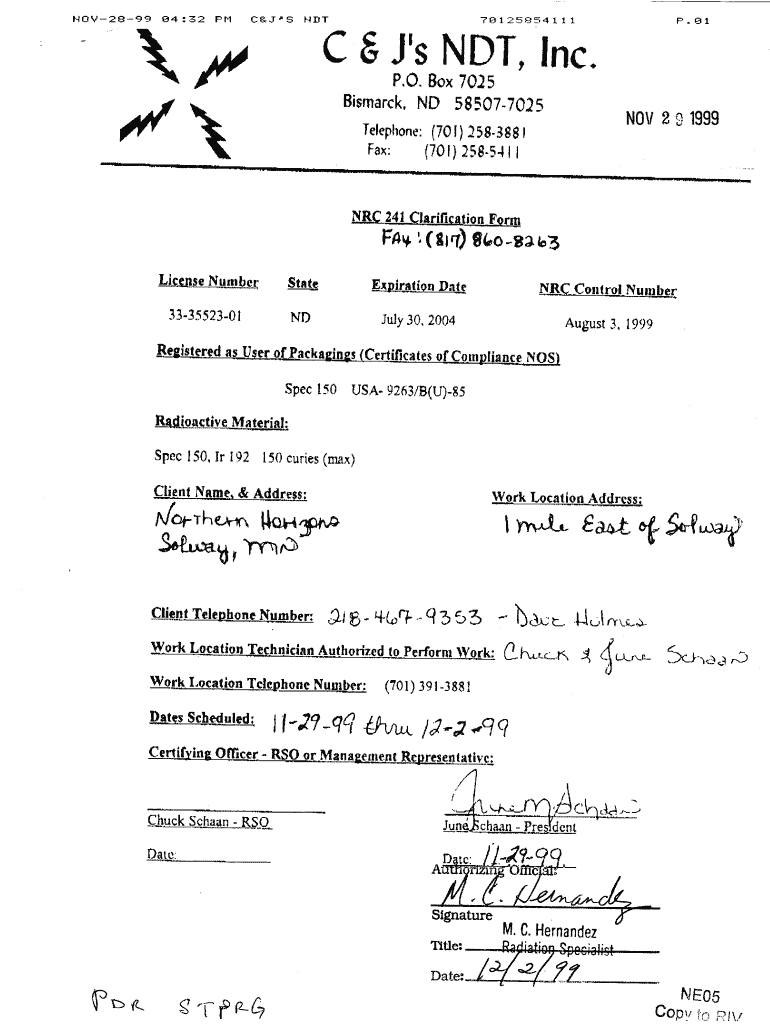 NOV-28-99 04:32 PM C&J'S NDT 70125854111 P.01
C & J's NDT, Inc.
P.O. Box 7025
Bismarck, ND 58507-7025
NOV 29 1999
Telephone: (701) 258-3881
Fax: (701) 258-5411
NRC 241 Clarification Form
FAX: (817) 860-8263
License Number State Expiration Date NRC Control Number
33-35523-01 ND July 30, 2004 August 3, 1999
Registered as User of Packagings (Certificates of Compliance NOS)
Spec 150 USA- 9263/B(U)-85
Radioactive Material:
Spec 150, Ir 192 150 curies (max)
Client Name, & Address: Work Location Address:
Northern Horizons 1 mile East of Solway
Solway, MN
Client Telephone Number: 218-467-9353 - Dave Holmes
Work Location Technician Authorized to Perform Work: Chuck & June Schaan
Work Location Telephone Number: (701) 391-3881
Dates Scheduled: 11-29-99 thru 12-2-99
Certifying Officer - RSO or Management Representative:
June M Schaan
Chuck Schaan - RSO June Schaan - President
Date: Date: 11-29-99
Authorizing Official:
M. C. Hernandez
Signature
M. C. Hernandez
Title: Radiation Specialist
Date: 12/2/99
PDR STPRG
NE05
Copy to RIV